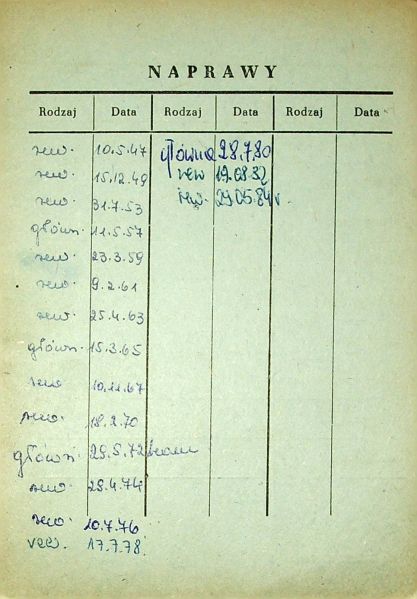 NAPRAWY
Rodzaj Data Rodzaj Data Rodzaj Data
rew. 10.5.47 główna 28.7.80
rew. 15.12.49 rew 19.08.82
rew. 31.7.53 rew. 29.05.84r.
główn. 11.5.57
rew. 23.3.59
rew. 9.2.61
rew. 25.4.63
główn. 15.3.65
rew 10.11.67
rew. 18.2.70
główn. 29.5.72
rew. 29.4.74
rew. 20.7.76
rew. 17.7.78.